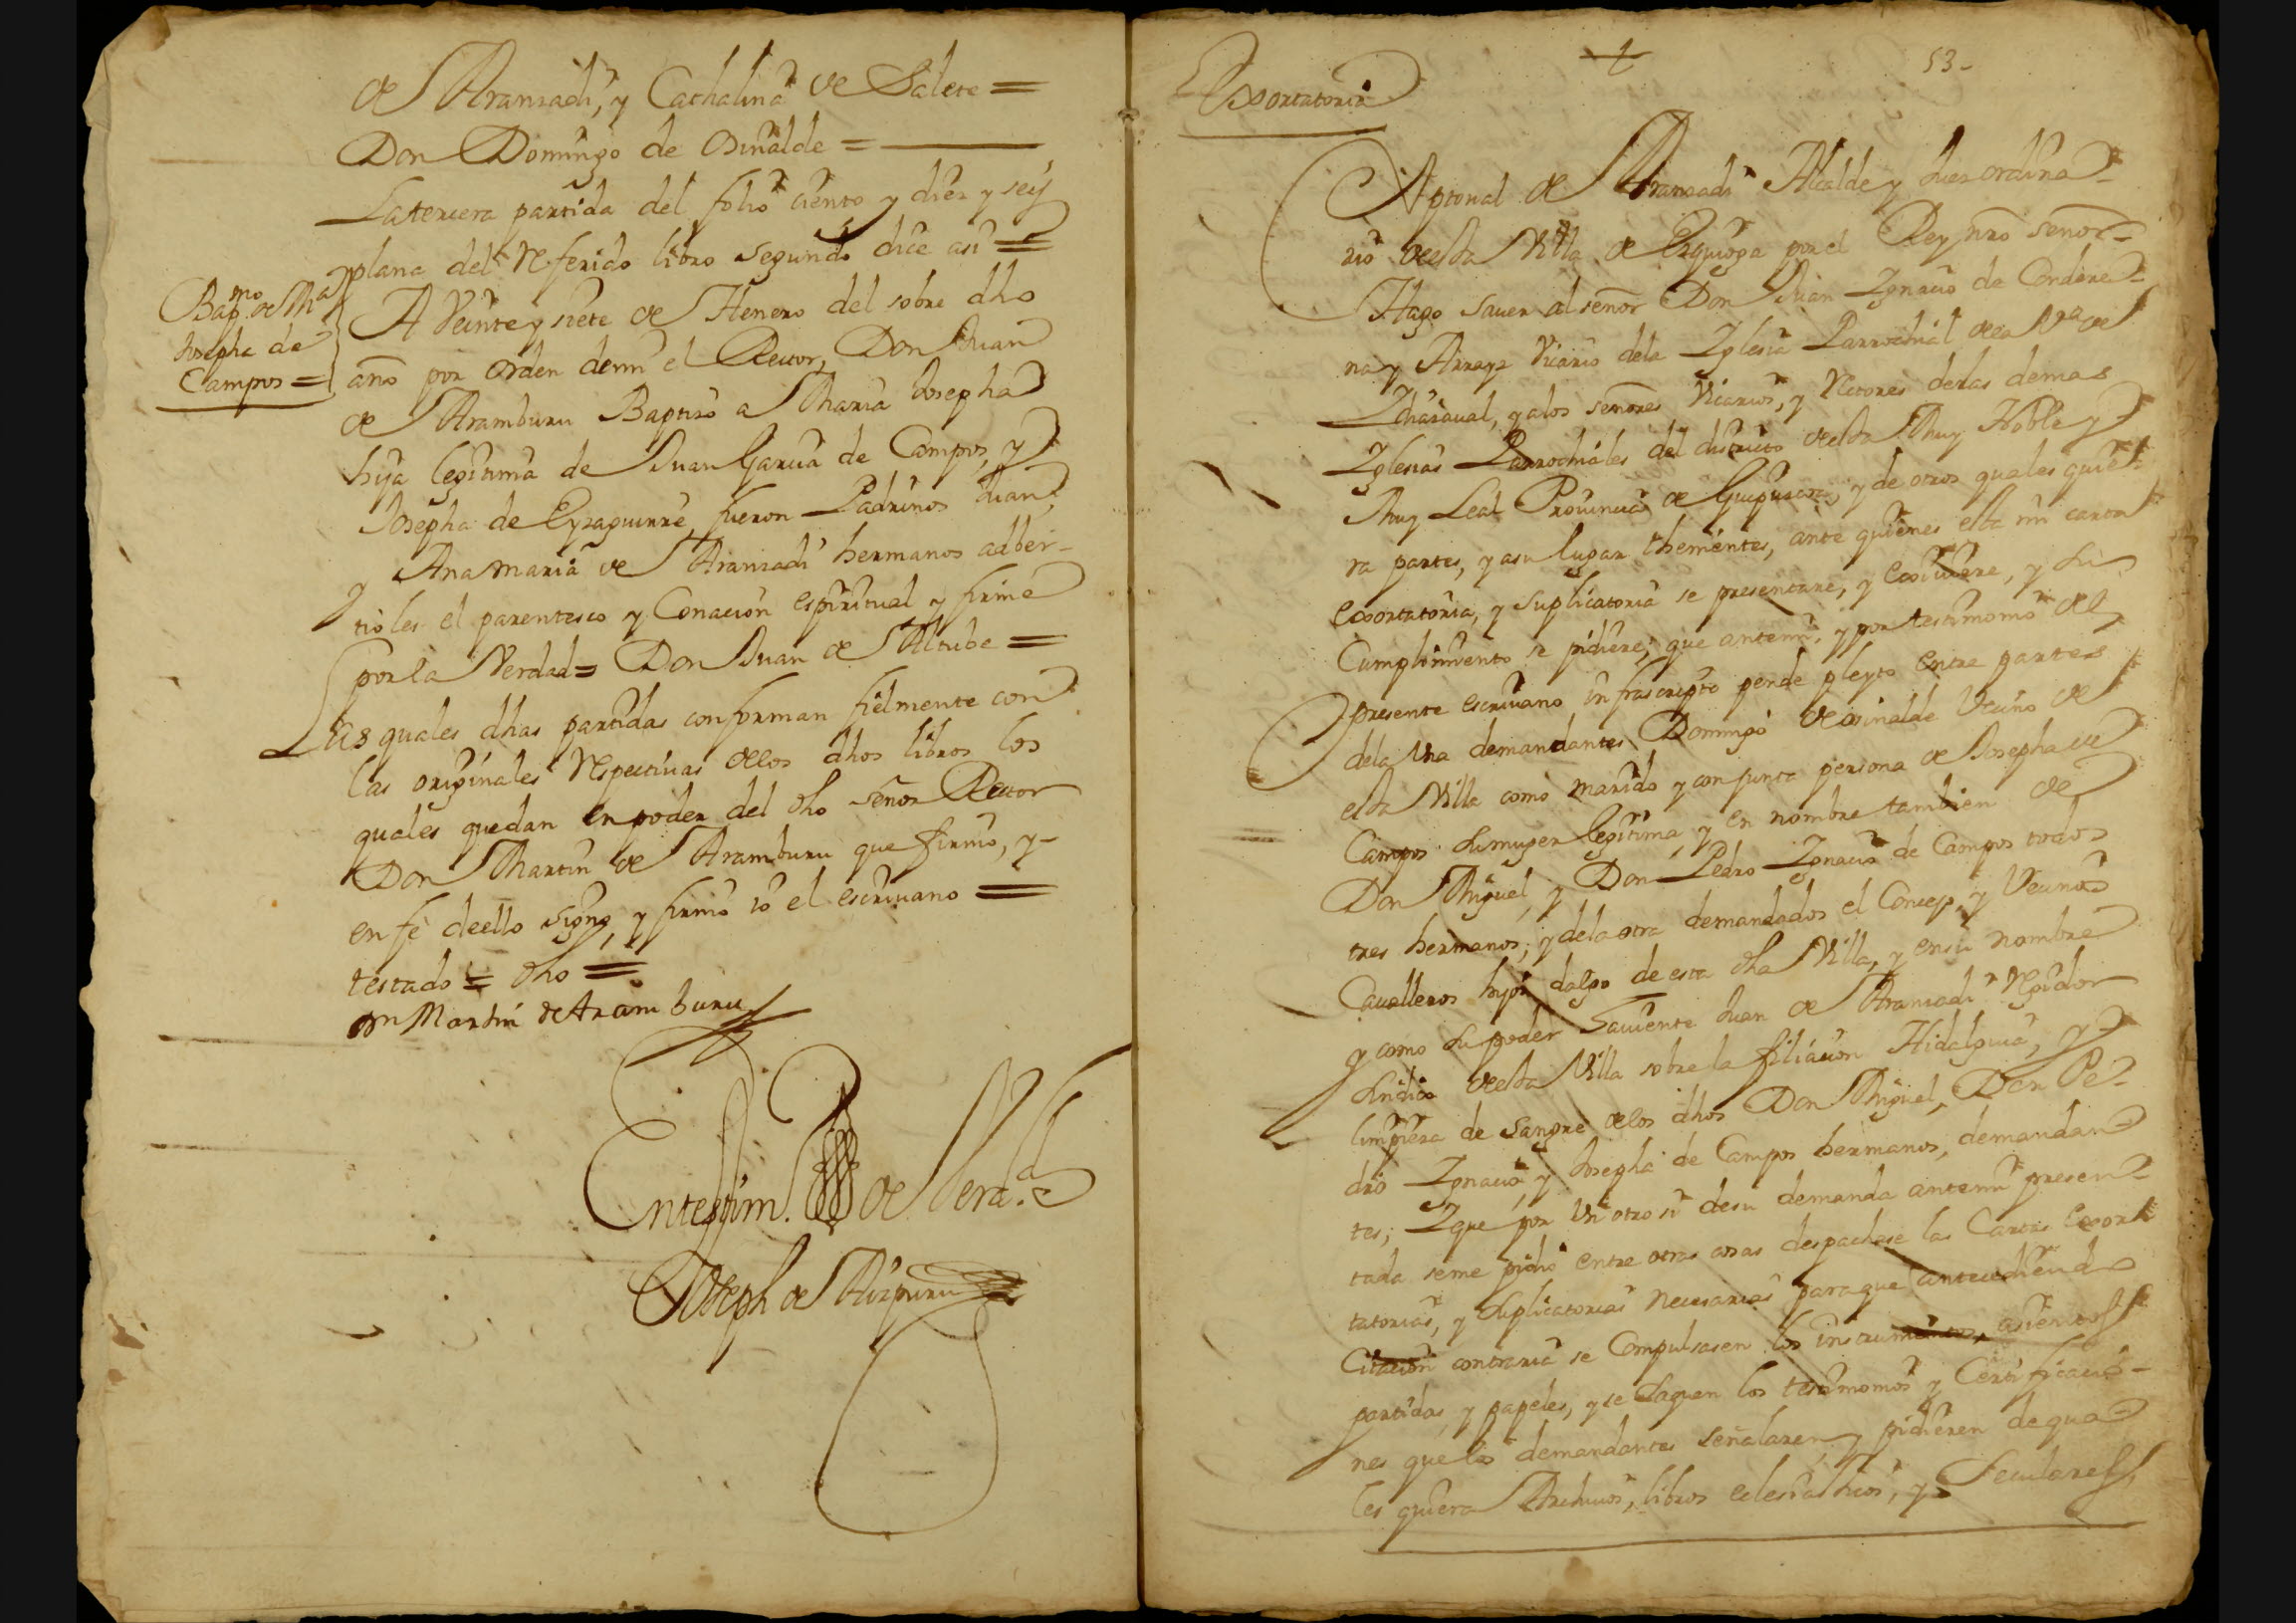 de Aranzadi, y Cathalina de Salete =
Don Domingo de Osinalde =
La tercera partida del folio ciento y diez y seis
plana del referido libro segundo dice asi =
Bapmo. de Ma
Josepha de
Campos =
A Veinte y siete de Henero del sobre dho
año por orden demi el Rector, Don Juan
de Aramburu Baptizó a Maria Josepha
hija legitima de Juan Garcia de Campos, y
Josepha de Eyzaguirre, fueron Padrinos Juan,
y Ana maria de Aranzadi hermanos adber-
tioles el parentesco y Conacion espiritual y firmé
por la Verdad = Don Juan de Altube =
Las quales dhas partidas conforman fielmente con
las originales respectivas delos dhos libros los
quales quedan en poder del dho señor Rector
Don Martin de Aramburu que firmó, y
en fe deello signo, y firmo io el escrivano =
testado = dho =
Dn Martin de Aramburu
En testim. de Verd.
Joseph de Aizpuru
53
Exortatoria
Xptoual de Aranzadi Alcalde y Juez ordina-
rio desta Villa de Ezquioga por el Rey nro señor =
Hago sauer al señor Don Juan Ignacio de
na y Arrayz Vicario dela Iglesia Parrochial dela Va de
Ichasaval, y alos señores Vicarios, y Retores delas demas
Iglesias Parrochiales del distrito desta Muy Noble y
Muy Leal Prouincia de Guipuzcoa, y de otros quales quie-
ra partes, y asu lugar thenientes, ante quienes esta mi carta
exortatoria, y suplicatoria se presentare, y exiviere, y su
Cumplimiento se pidiere, que antemi, y por testimonio del
presente escriuano infrascripto pende pleyto entre partes
dela una demandantes Domingo de osinalde Vecino de
esta Villa como marido y conjunta persona de Josepha de
Campos su muger legitima, y en nombre tambien de
Don Miguel, y Don Pedro Ignacio de Campos todos
tres hermanos; y dela otra demandados el Concejo, y Vecinos
Caualleros hijos dalgo de esta dha Villa, y en su nombre
y como su poder hauiente Juan de Aranzadi Regidor
Sindico desta Villa sobre la filiacion Hidalguia, y
limpieza de sangre delos dhos Don Miguel, Don Pe-
dro Ignacio, y Josepha de Campos hermanos, demandan-
tes; I que por un otro si desu demanda antemi presen-
tada seme pidió entre otras cosas despachase las Cartas exor-
tatorias, y suplicatorias necesarias para que antecediendo
Citacion contraria se Compulsasen los instrumentos, asientos
partidas, y papeles, y se saquen los testimonios y Certificacio-
nes que los demandantes señalaren, y pidieren de qua-
les quiera Archiuos, libros eclesiasticos, y Seculares,